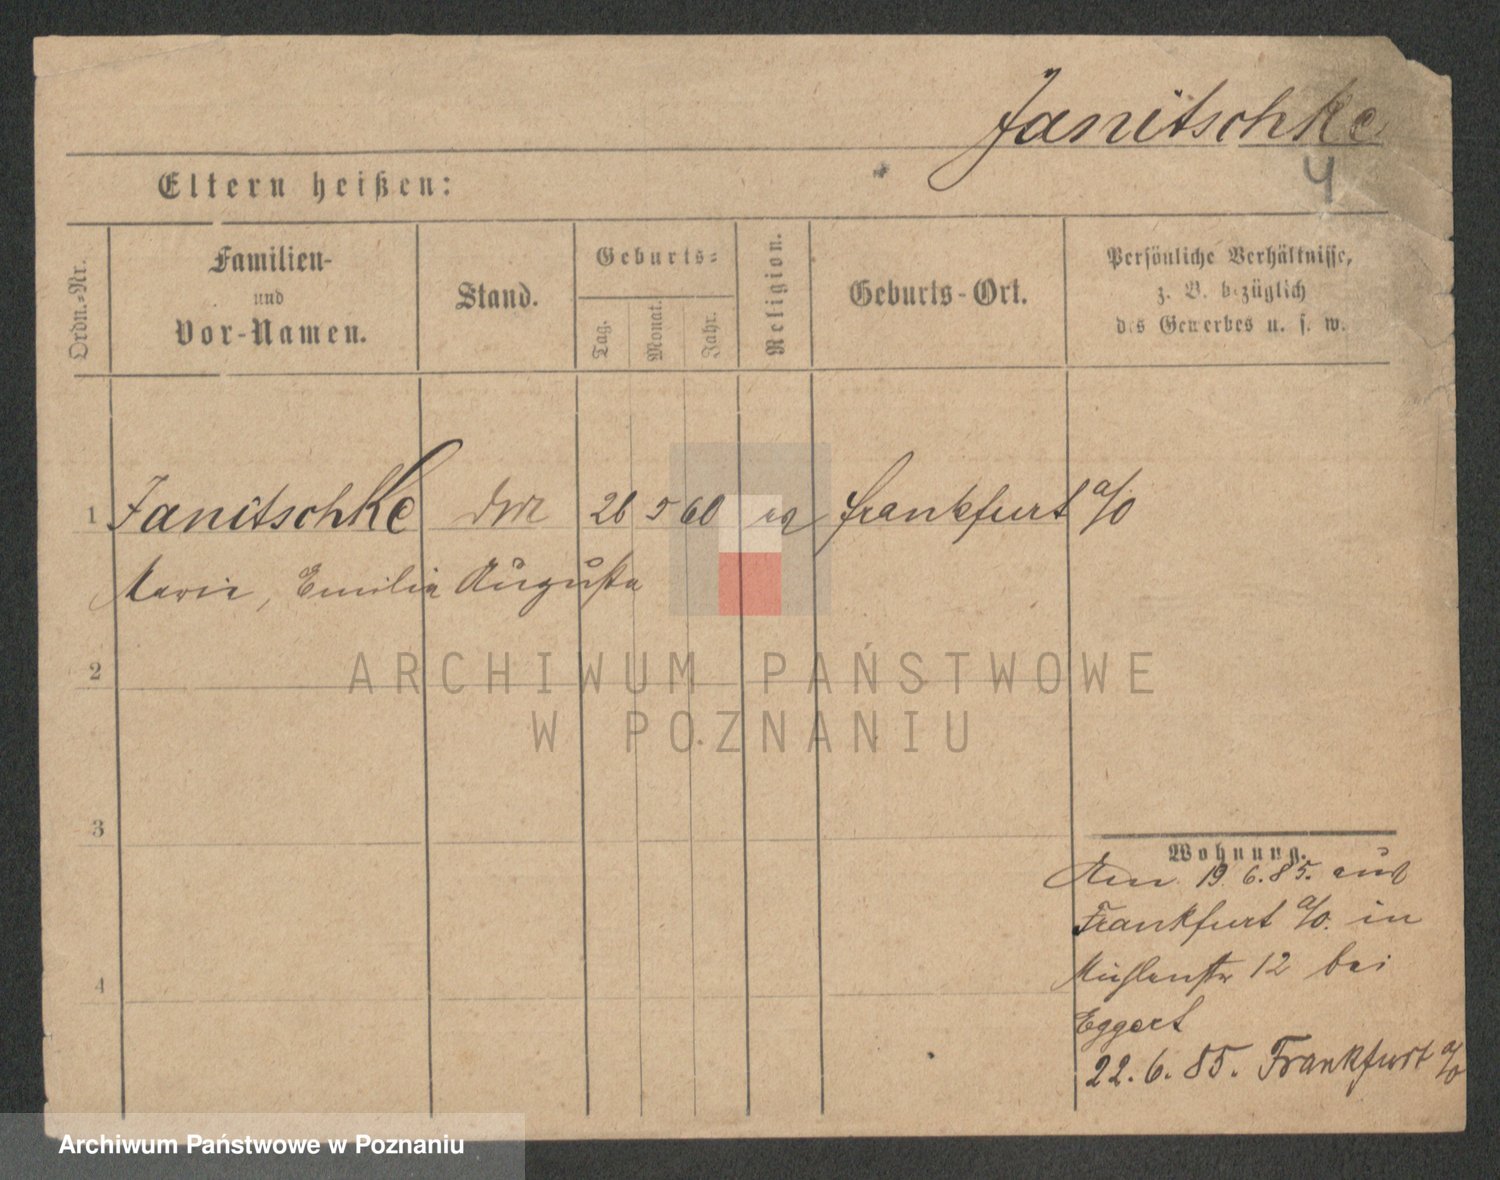 Janitschke
4
Eltern heißen:
Ordn.-Nr.
Familien-
und
Vor-Namen.
Stand.
Geburts-
Tag.
Monat.
Jahr.
Religion.
Geburts-Ort.
Persönliche Verhältnisse,
z. B. bezüglich
des Gewerbes u. s. w.
1 Janitschke 26 5 60 Frankfurt a/O
Marie, Emilie Augusta
2
3
4
ARCHIWUM PAŃSTWOWE
W POZNANIU
Wohnung.
19.6.85. aus
Frankfurt a/O. in
Mühlenstr 12 bei
Eggert
22.6.85. Frankfurt a/O
Archiwum Państwowe w Poznaniu